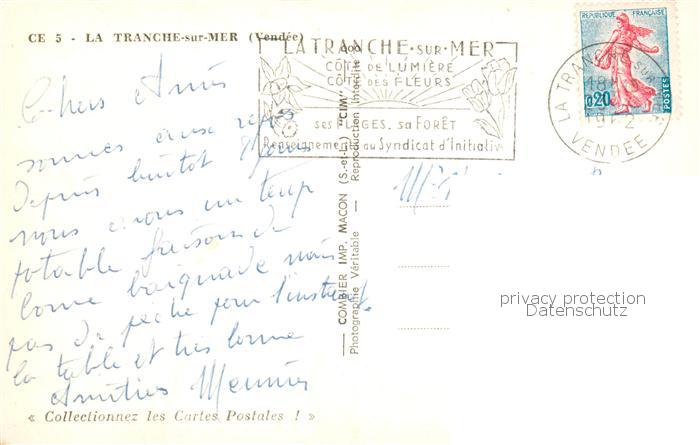 CE 5 - LA TRANCHE-sur-MER (Vendée)
LA TRANCHE-SUR-MER
CÔTE DE LUMIÈRE
CÔTE DES FLEURS
ses PLAGES. sa FORÊT
Renseignements au Syndicat d'Initiative
REPUBLIQUE FRANÇAISE
0,20
POSTES
LA TRANCHE SUR MER
18
VENDEE
Chers Amis
sommes
Depuis bientot
nous avons un temp
potable faisons de
bonne baignade mais
pas de peche pour l'instant
la table et très bonne
Amitiés Meunier
COMBIER IMP. MACON (S.-et-L.) "CIM"
Photographie Véritable — Reproduction Interdite
« Collectionnez les Cartes Postales ! »
privacy protection
Datenschutz